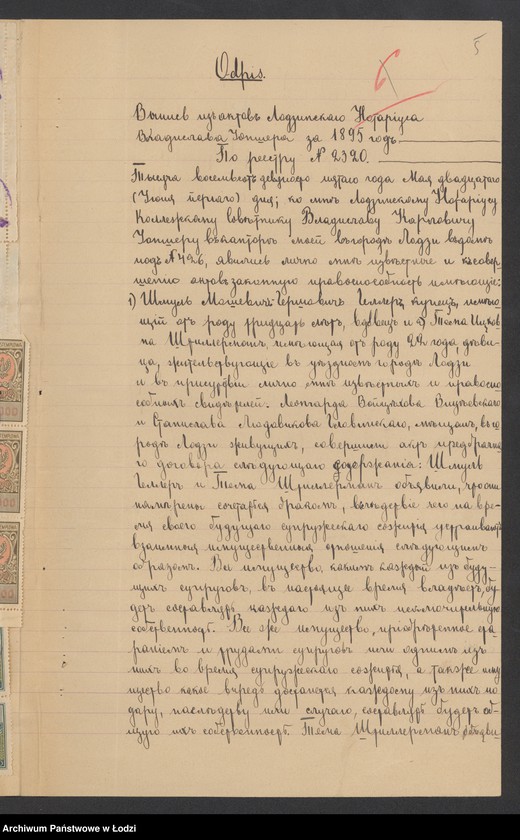 5
Odpis.
Выпись изъ актовъ Лодзинскаго Нотаріуса
Владислава Іоншера за 1895 годъ
По реестру № 2320.
Тысяча восемьсотъ девяносто пятаго года Мая двадцатаго
(Іюня перваго) дня; ко мнѣ Лодзинскому Нотаріусу
Коллежскому Совѣтнику Владиславу Карловичу
Іоншеру въ конторѣ моей въ городѣ Лодзи въ домѣ
подъ № 426, явились лично мнѣ извѣстные и къ совер
шенію актовъ законную правоспособность имѣющіе:
1) Шмуль Мошевичъ-Гершовичъ Геллеръ, купецъ, имѣю
щій отъ роду тридцать лѣтъ, вдовецъ и 2) Тема Ицков
на Шриллерманъ, имѣющая отъ роду 22 года, дѣви
ца, жительствующіе въ уѣздномъ городѣ Лодзи
и въ присутствіи лично мнѣ извѣстныхъ и правоспо
собныхъ свидѣтелей: Войцѣхова
и Станислава Людвикова мѣщанъ, въ го
родѣ Лодзи живущихъ, совершили актъ предбрачна
го договора слѣдующаго содержанія: Шмуль
Геллеръ и Тема Шриллерманъ объявили, что они
намѣрены сочетаться бракомъ, вслѣдствіе чего на вре
мя своего будущаго супружескаго сожитія устраиваютъ
взаимныя имущественныя отношенія слѣдующимъ
образомъ. Все имущество, какимъ каждый изъ буду-
щихъ супруговъ, въ настоящее время владѣетъ, бу
детъ составлять каждаго изъ нихъ исключительную
собственность. Все же имущество, пріобрѣтенное ста
раніемъ и трудами супруговъ или однимъ изъ
нихъ во время супружескаго сожитія, а также иму
щество какое впредь достанется каждому изъ нихъ по
дару, наслѣдству или случаю, составлять будетъ об-
щую ихъ собственность. Тема Шриллерманъ
Archiwum Państwowe w Łodzi